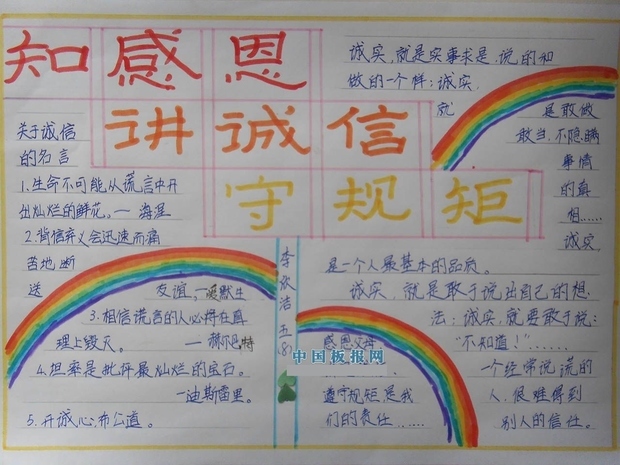 知感恩
讲诚信
守规矩
关于诚信
的名言
1.生命不可能从谎言中开
出灿烂的鲜花。— 海涅
2.背信弃义会迅速而痛
苦地断
送
友谊,—爱默生
3.相信谎言的人必将在真
理上毁灭。
— 赫尔巴特
4.坦率是批评最灿烂的宝石。
—迪斯雷里。
5.开诚心,布公道。
李欣洁
五(8)
诚实,就是实事求是,说的和
做的一个样;诚实,
就
是敢做
敢当,不隐瞒
事情
的真
相……
诚实,
是一个人最基本的品质。
诚实,就是敢于说出自己的想
法;诚实,就要敢于说:
"不知道!"……
一个经常说谎的
人,很难得到
别人的信任。
感恩父母
中国板报网
遵守规矩是我
们的责任……